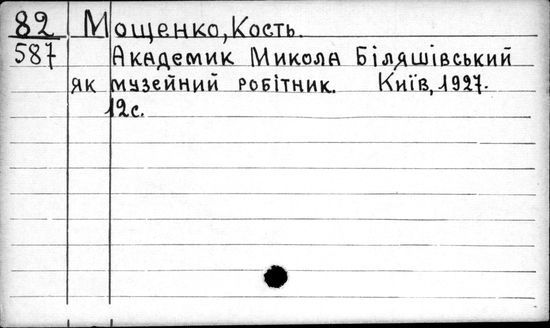 82 Мощенко, Кость.
587 Академик Микола Біляшівський
як музейний робітник. Київ, 1927.
12с.